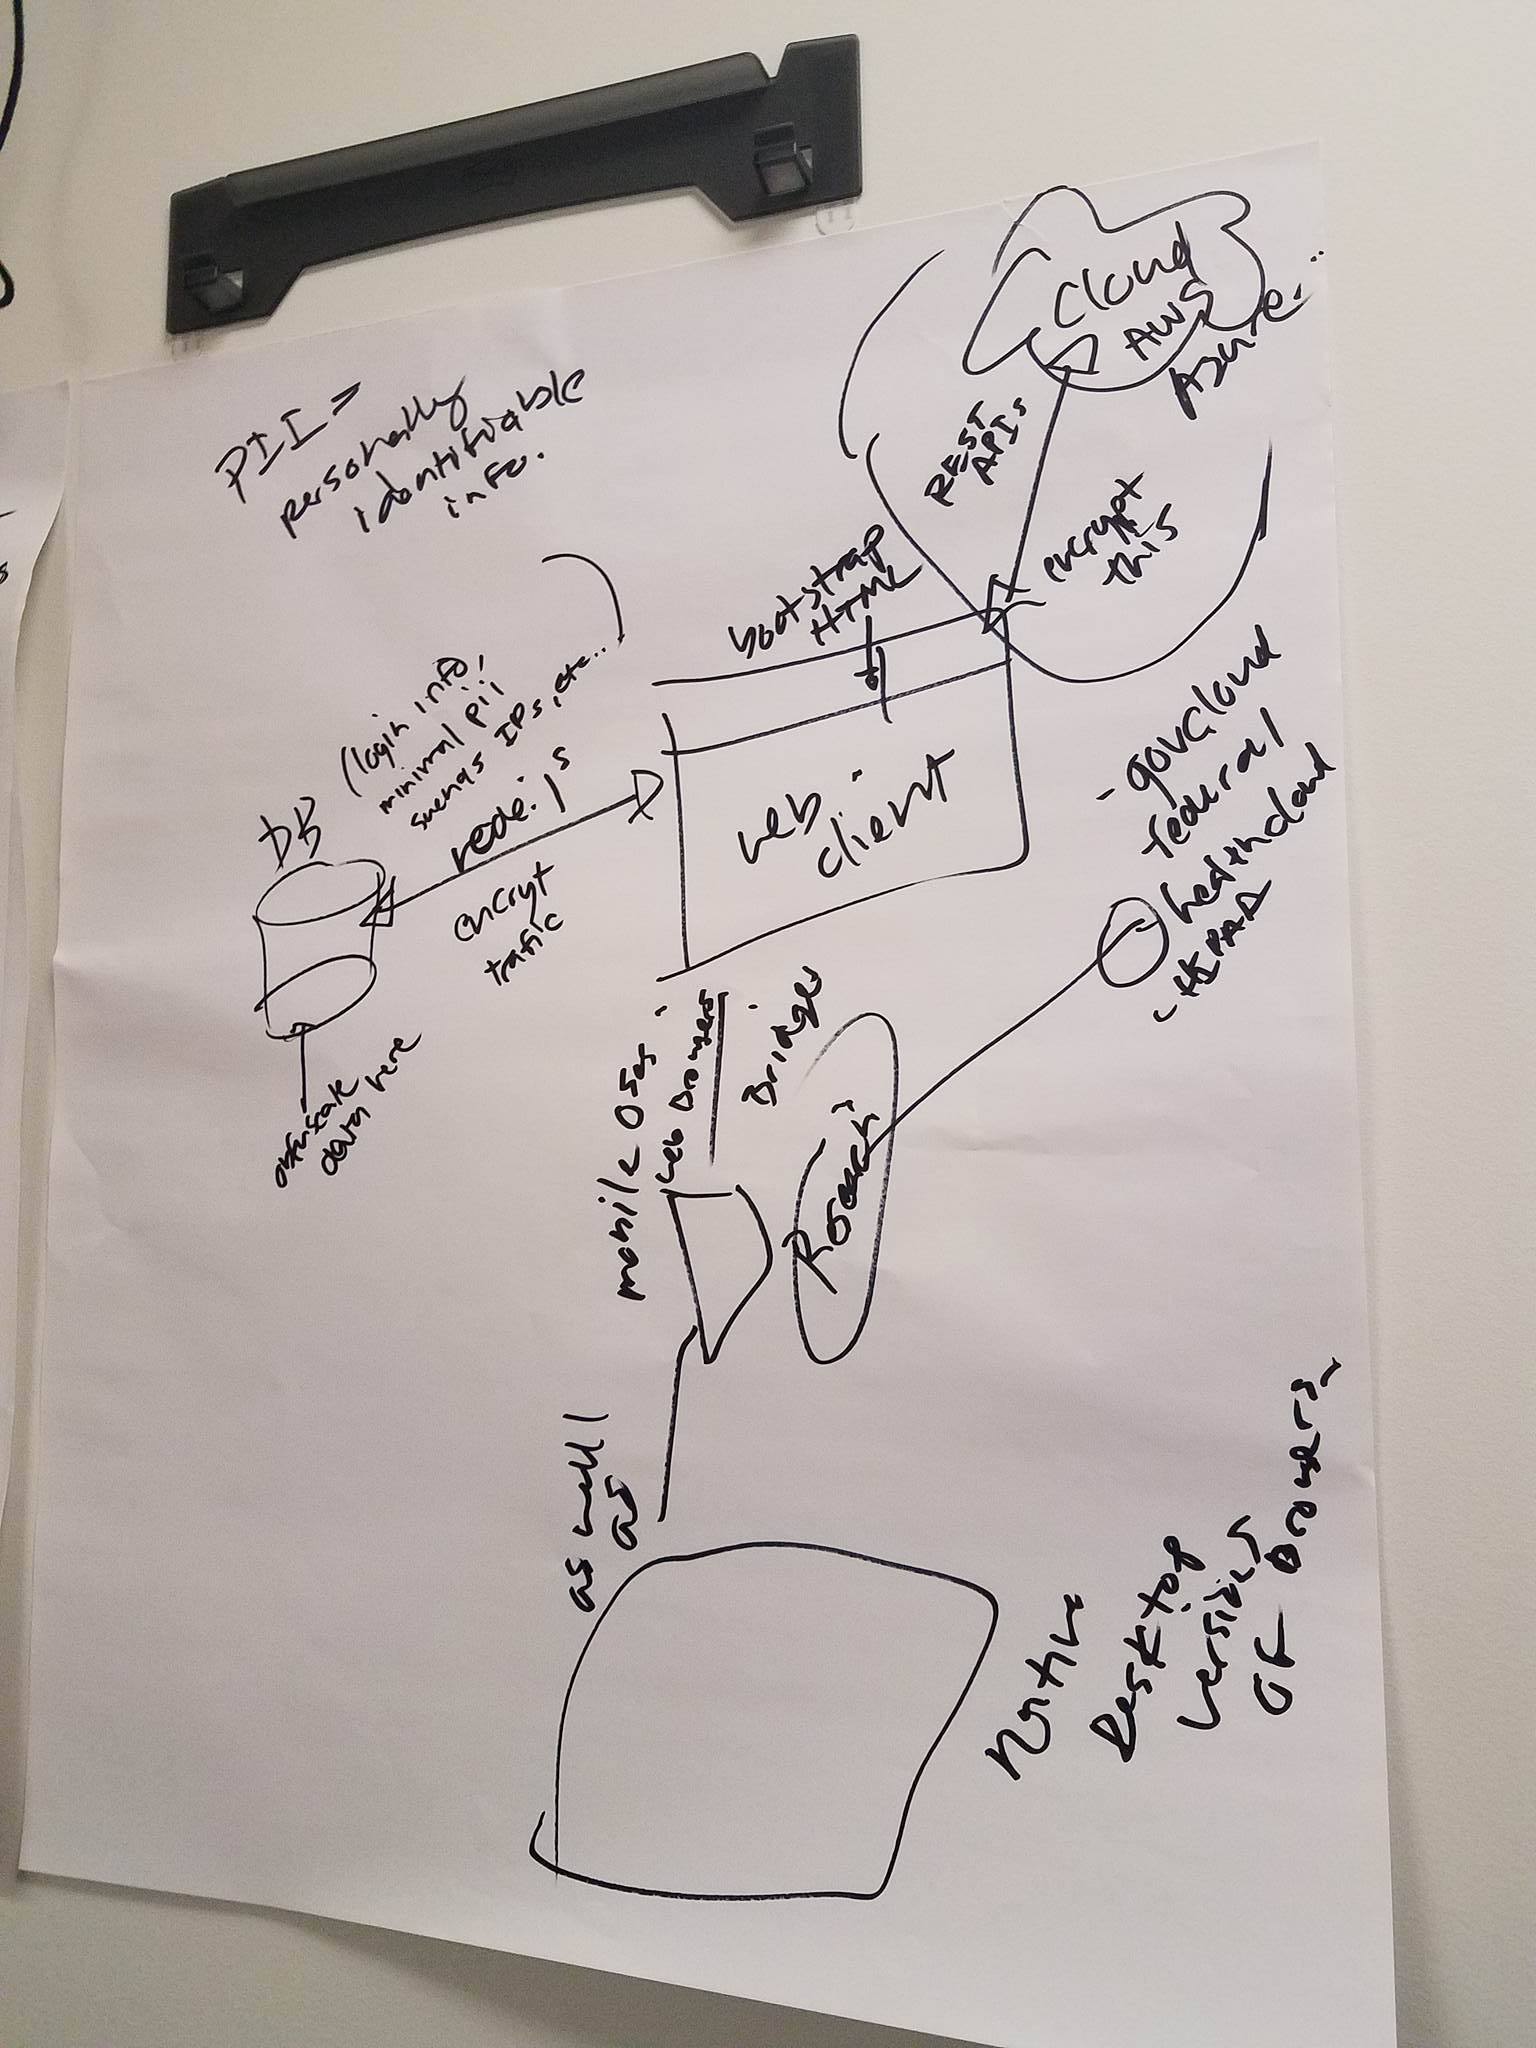 PII =
personally
identifiable
info.
Cloud
AWS
Azure...
REST
APIs
encrypt
this
bootstrap
HTML
DB
(login info,
minimal pii
such as IPs, etc...
encryt
trafic
web
client
obfuscate
data here
- govcloud
federal
healthcloud
- HIPAA
mobile OSes
web browsers
Bridges
Research
as well
as
Native
Desktop
versions
of browsers